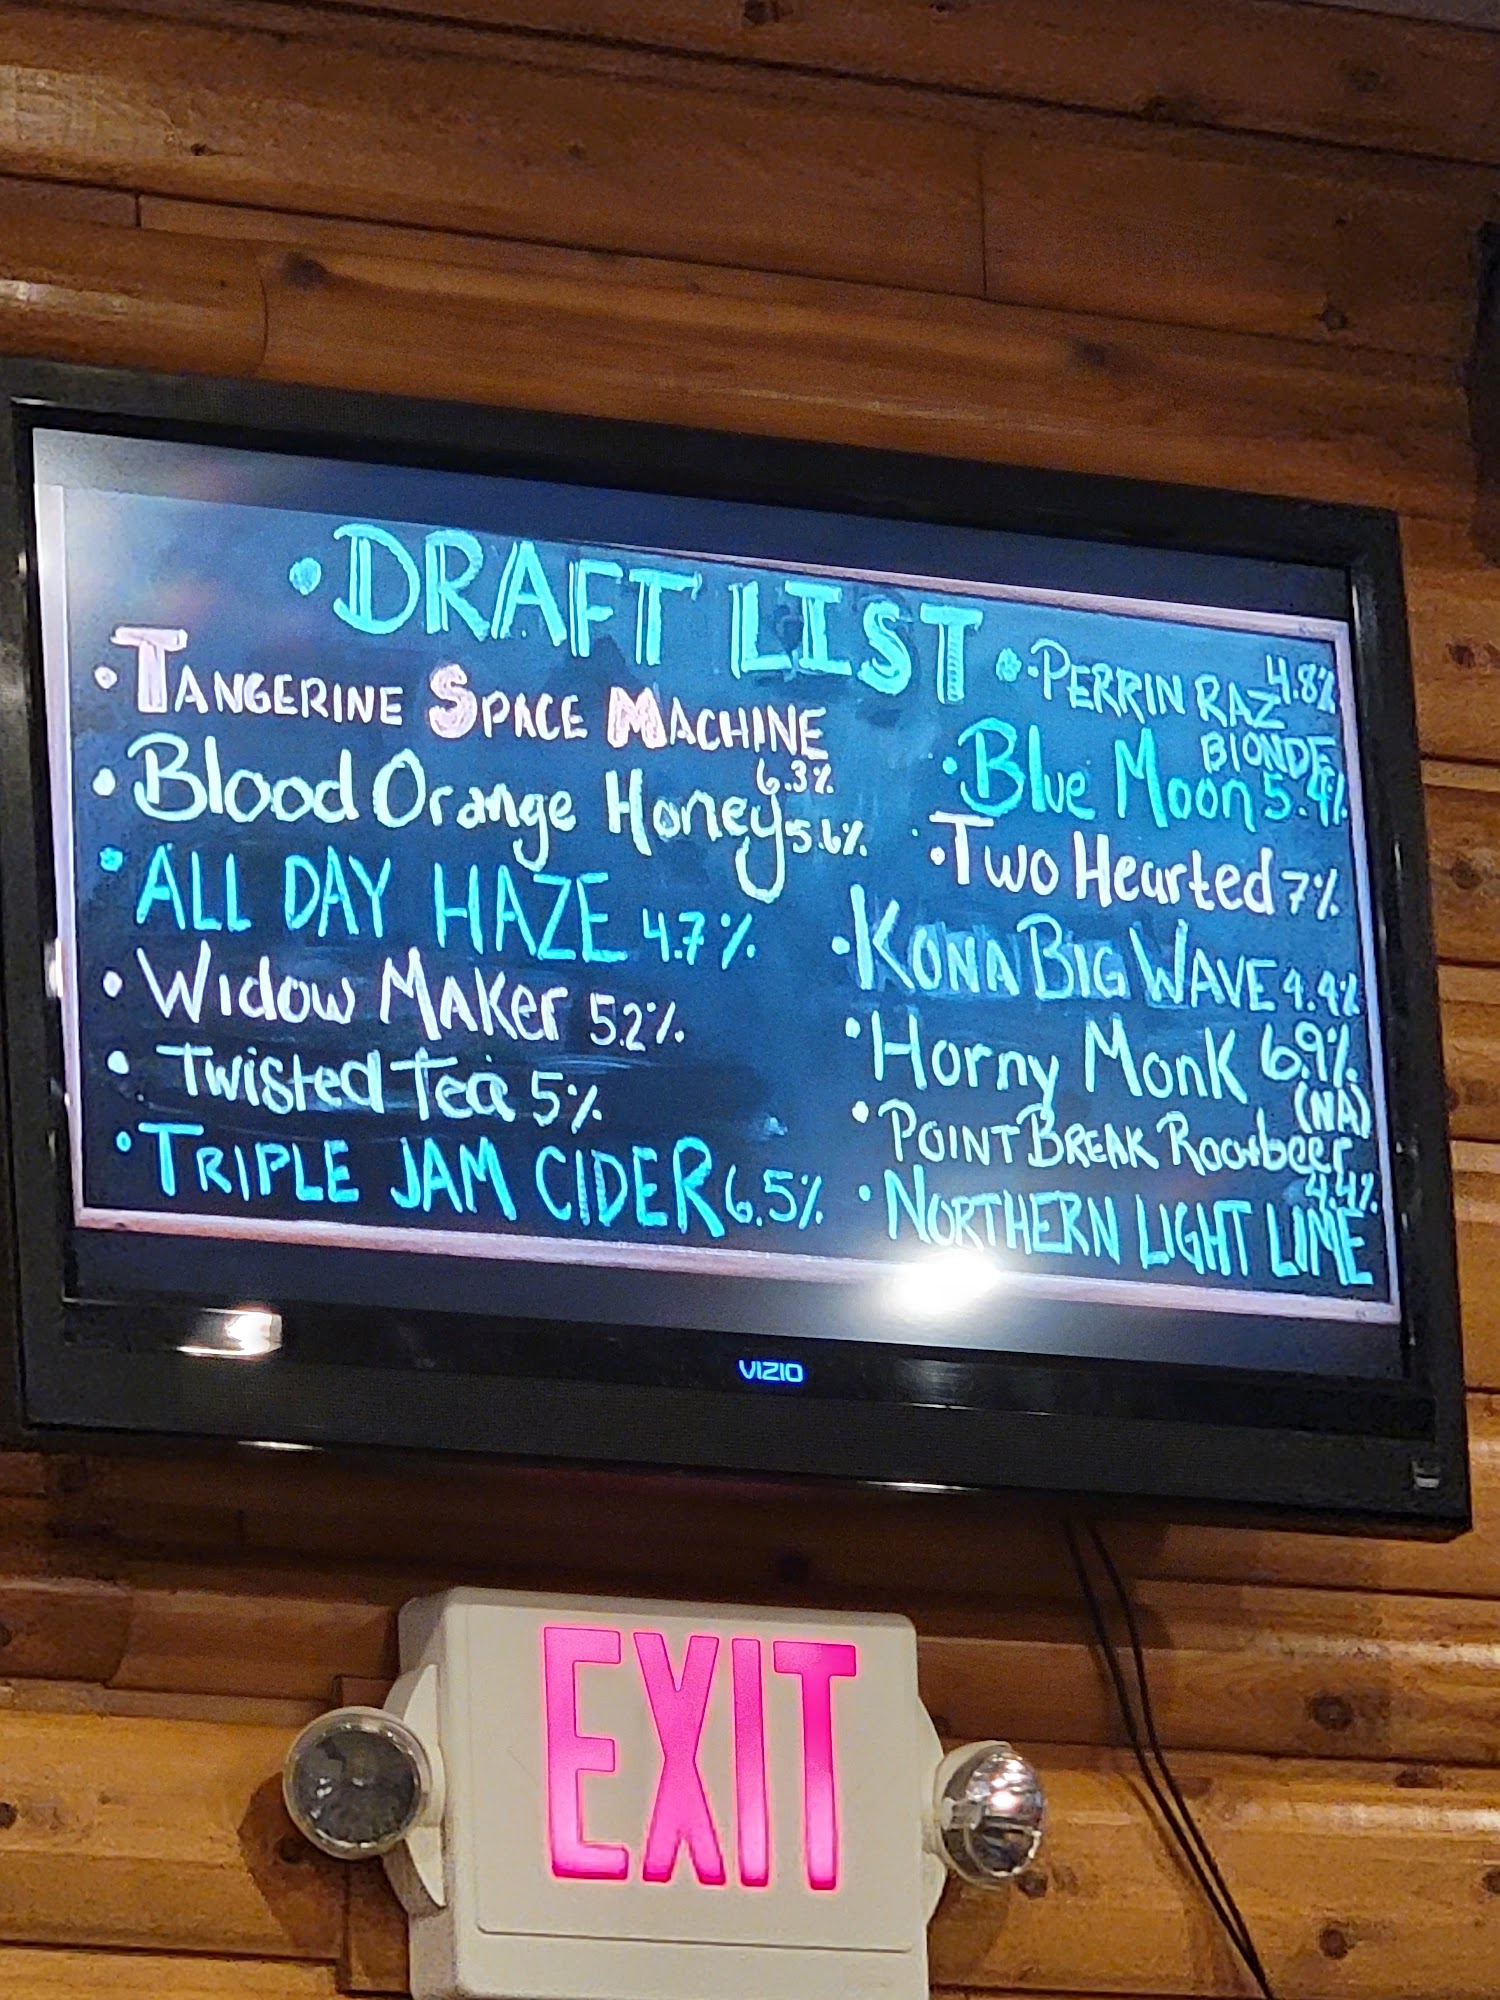 • DRAFT LIST
• TANGERINE SPACE MACHINE
6.3%
• Blood Orange Honey 5.6%
• ALL DAY HAZE 4.7%
• WIDOW MAKER 5.2%
• Twisted Tea 5%
• TRIPLE JAM CIDER 6.5%
• PERRIN RAZ 4.8%
BLONDE
• Blue Moon 5.4%
• Two Hearted 7%
• KONA BIG WAVE 4.4%
• Horny Monk 6.9%
(NA)
• POINT BREAK Rootbeer
4.4%
• NORTHERN LIGHT LIME
VIZIO
EXIT